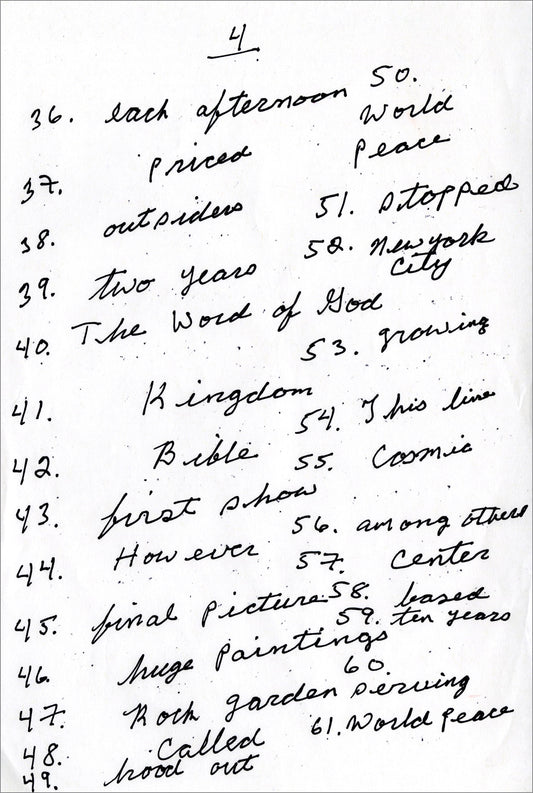 4
36. each afternoon
37. priced
38. outsiders
39. two years
40. The Word of God
41. Kingdom
42. Bible
43. first show
44. However
45. final picture
46. huge paintings
47. Rock garden
48. called
49. hood out
50.
World
Peace
51. stopped
52. New york
City
53. growing
54. This line
55. Cosmic
56. among others
57. Center
58. based
59. ten years
60
serving
61. World Peace